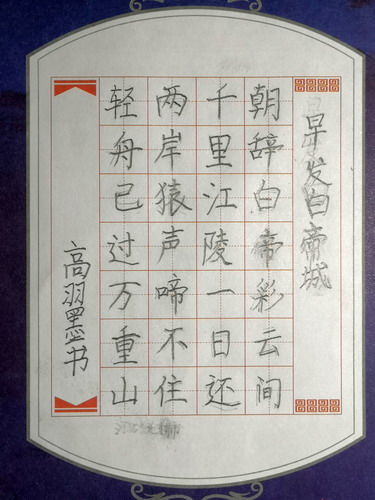 早发白帝城
朝辞白帝彩云间
千里江陵一日还
两岸猿声啼不住
轻舟已过万重山
高羽墨书